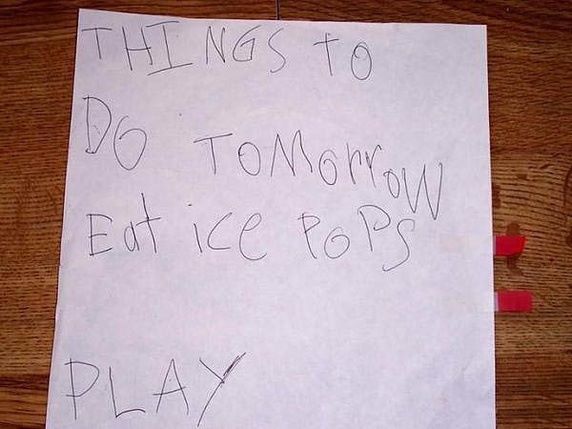 THINGS TO
DO TOMORROW
Eat ice POPS
PLAY